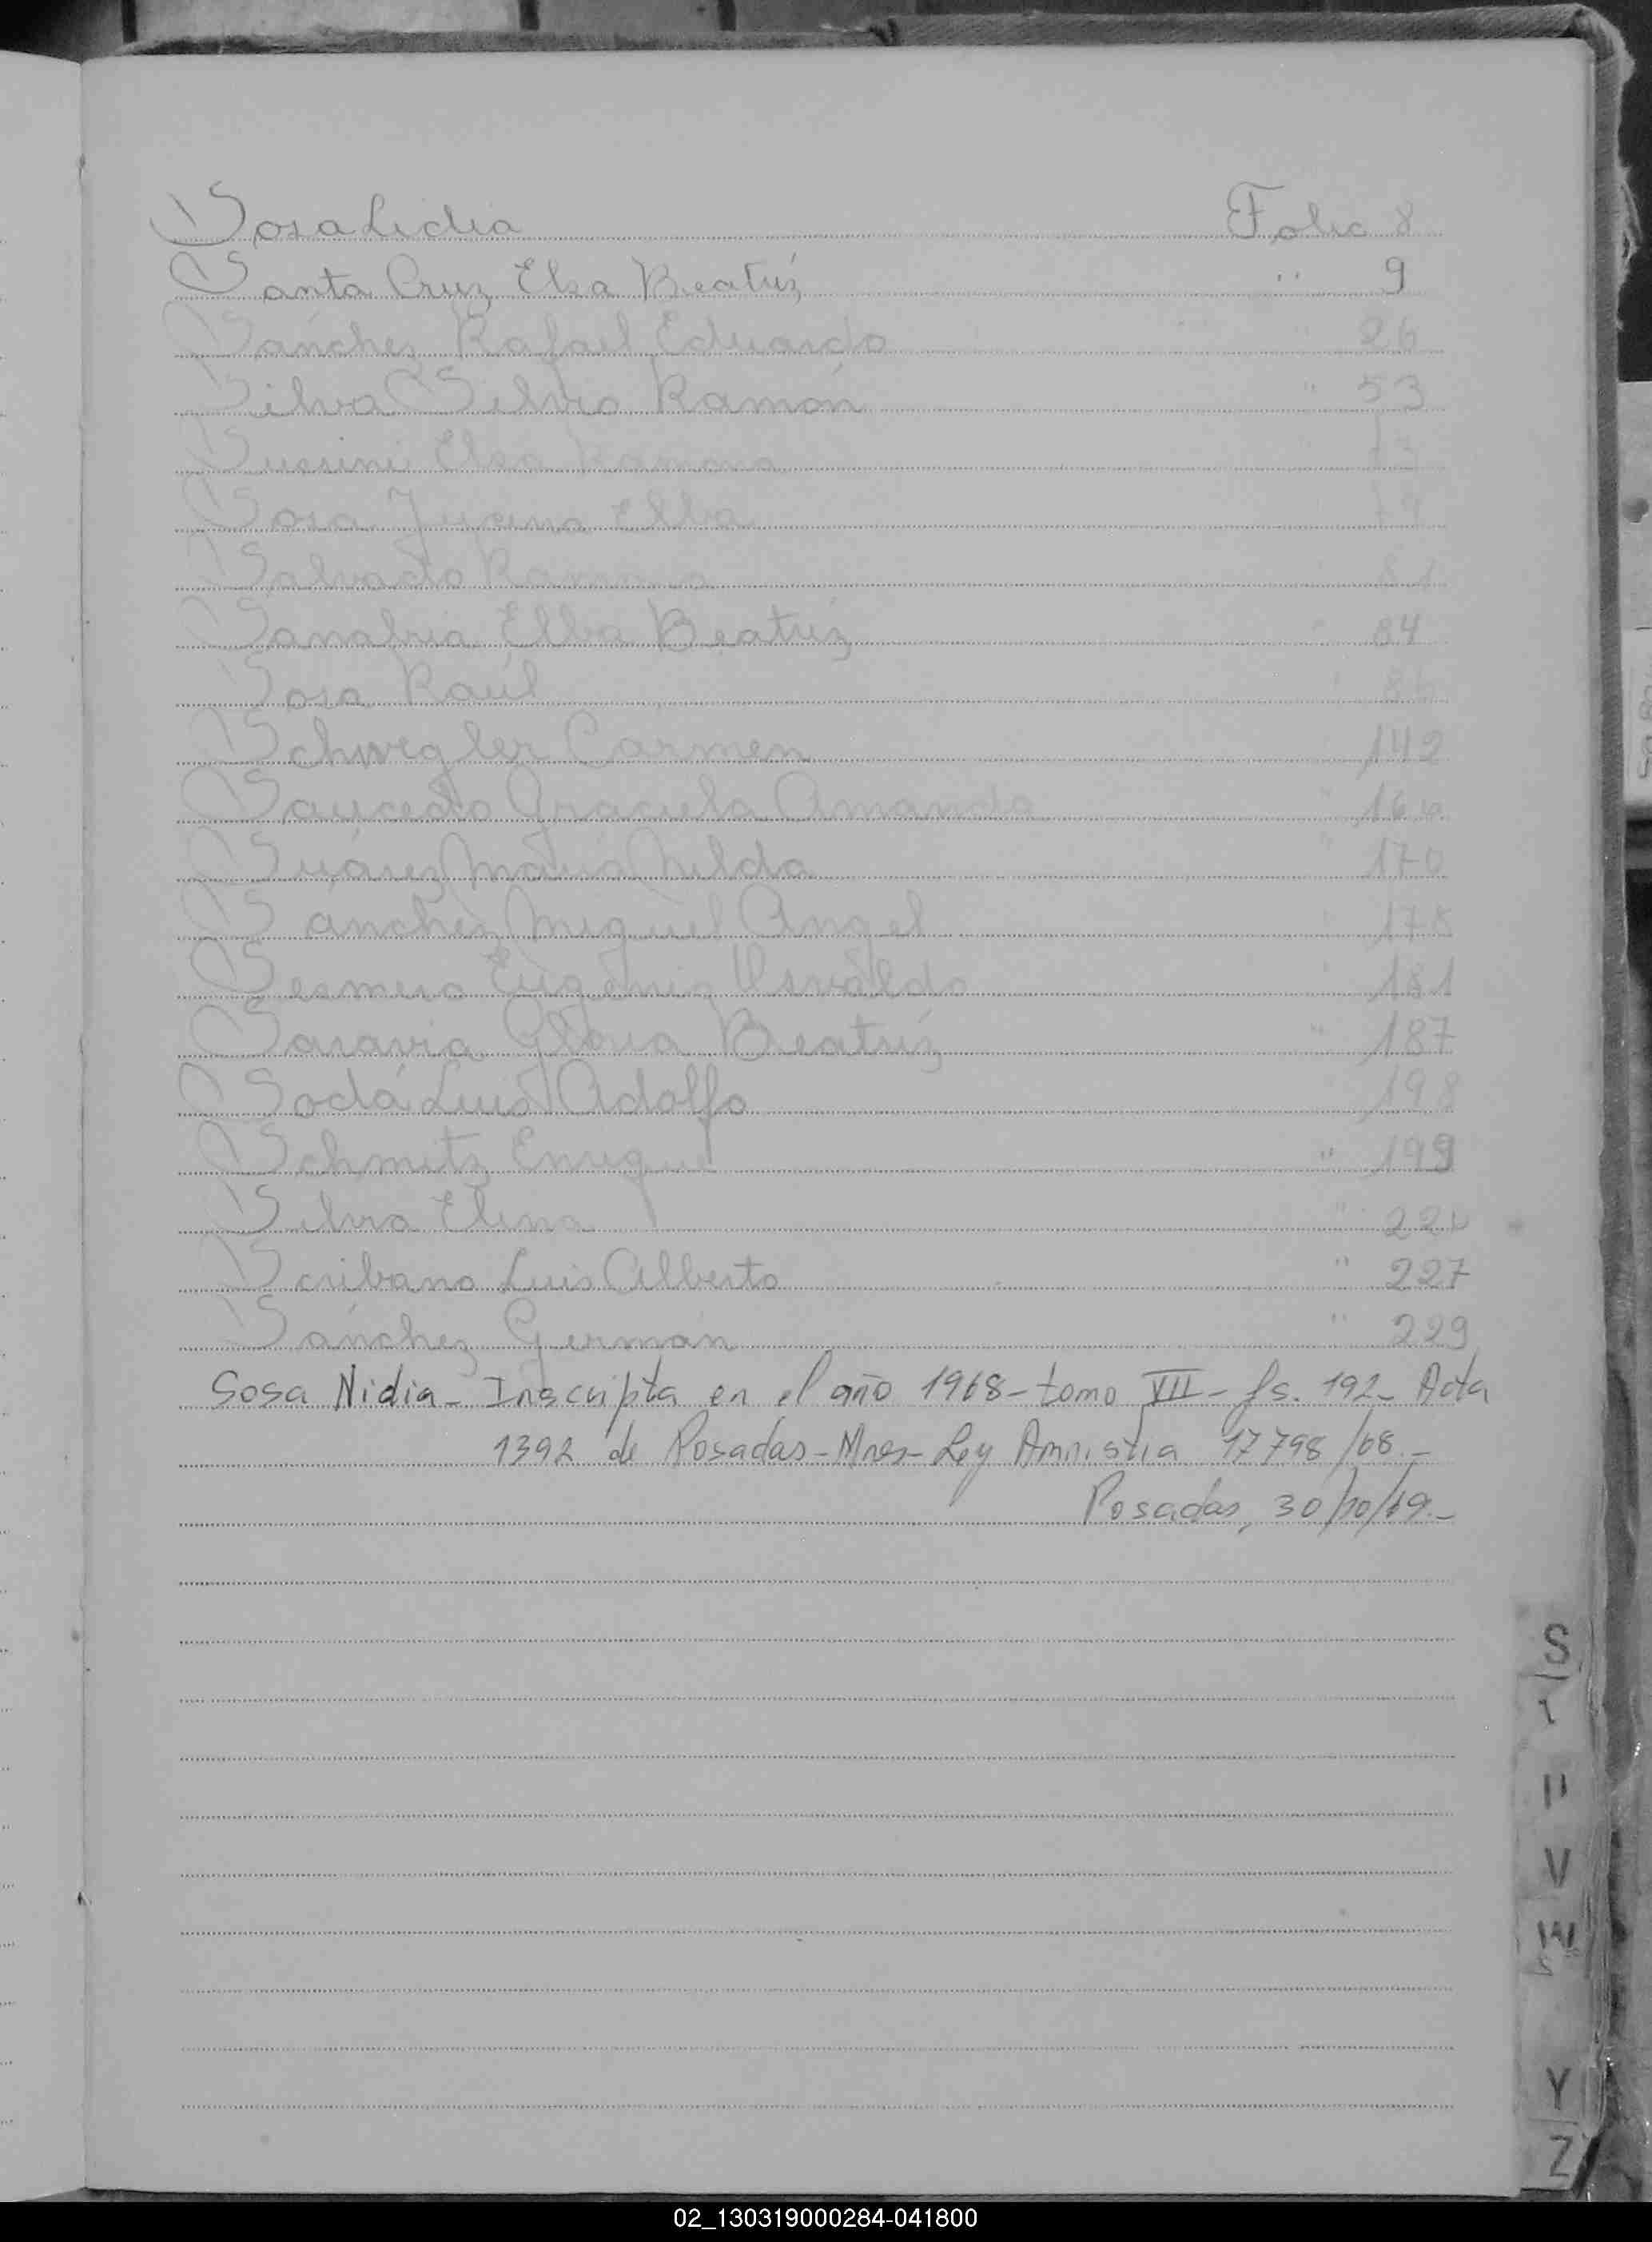 Sosa Lidia Folio 8
Santa Cruz Elsa Beatríz " 9
Sánchez Rafael Eduardo " 26
Silva Silvio Ramón " 53
Elsa Ramona
Sosa Elba 79
Salvado Ramona
Sanabria Elba Beatríz " 84
Sosa Raúl
Schwegler Carmen 142
Saucedo Graciela Amanda "
Suárez María Nelda " 170
Sánchez Miguel Angel " 178
Eugenio Osvaldo " 181
Saravia Gloria Beatríz " 187
Sodá Luis Adolfo 198
Schmitz Enrique " 199
Silva Elena "
Scribano Luis Alberto " 227
Sánchez Germán " 229
Sosa Nidia - Inscripta en el año 1968 - tomo VII - fs. 192 - Acta
1392 de Posadas - Mnes - Ley Amnistia 17798/68.-
Posadas, 30/10/69.-
S
V
W
Y
Z
02_130319000284-041800